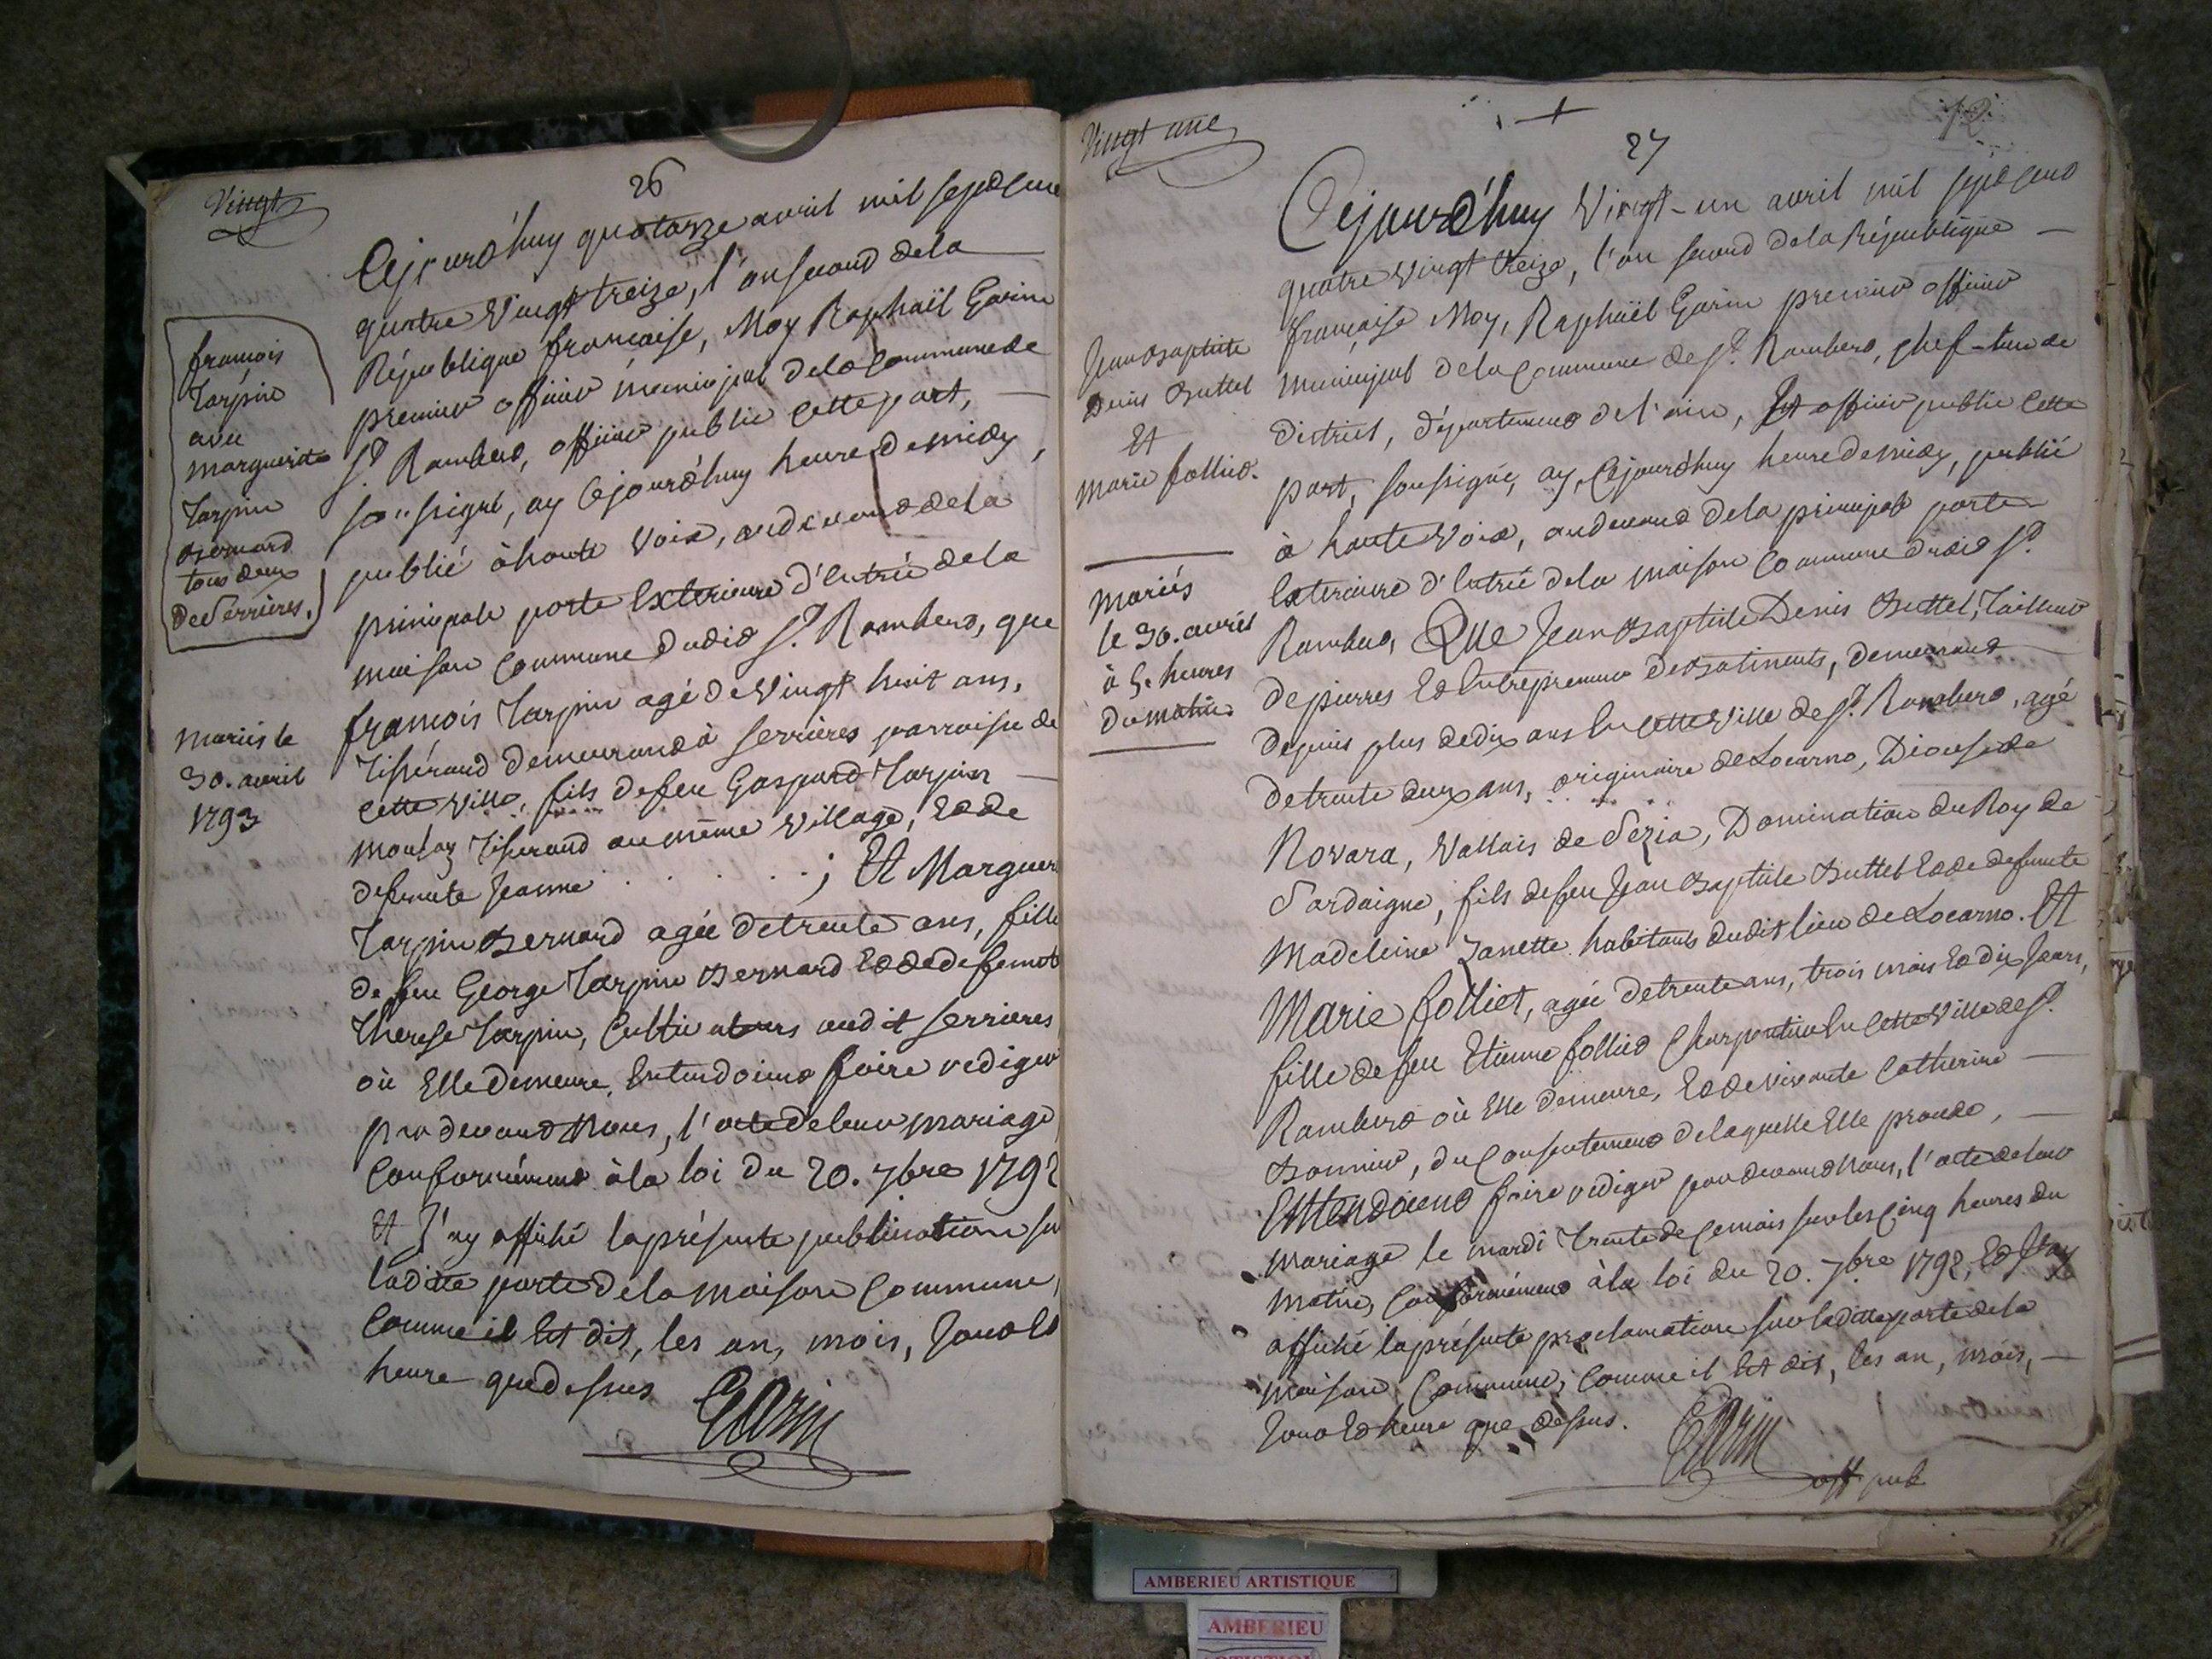 Vingt
26
Cejourd'huy quatorze avril mil sept cent
quatre Vingt treize, l'an second de la
République francaise, Moy Raphaël Garin
premier officier municipal de la Commune de
St. Rambert, officier public cette part,
soussigné, ay Cejourd'huy heure de midy,
publié à haute voix, au devant de la
principale porte Exterieure d'Entrée de la
maison Commune dudit St. Rambert, que
françois Tarpin agé de vingt huit ans,
Tisserand demeurant à serrières parroisse de
Cette ville, fils de feu Gaspard Tarpin
Tisserand au même village, Et de
defunte Jeanne . . . . . . ; Et Marguer
Tarpin Bernard agée de trente ans, fille
de feu George Tarpin Bernard Et de defunte
Therese Tarpin, Cultivateurs audit serrieres
où Elle demeure, Entendoient faire rediger
par devant Nous, l'acte de leur mariage
Conformément à la loi du 20. 7bre 1792
Et J'ay affiché la présente publication sur
laditte porte de la maison Commune,
Comme il Est dit, les an, mois, Jour Et
heure que dessus
Garin
françois
Tarpin
avec
marguerite
Tarpin
Bernard
tous deux
de Serrières.
mariés le
30. avril
1793
Vingt une
27
Cejourd'huy Vingt-un avril mil sept cent
quatre Vingt treize, l'an second de la République
française Moy, Raphaël Garin premier officier
municipal de la Commune de St. Rambert, chef-lieu de
district, département de l'ain, Et officier public Cette
part, soussigné, ay, Cejourd'huy heure de midy, publié
à haute voix, au devant de la principale porte
Exterieure d'Entrée de la maison Commune dudit St.
Rambert, Que Jean Baptiste Denis Buttel, Tailleur
de pierres Et Entrepreneur de Batiments, demeurant
depuis plus de dix ans En cette ville de St. Rambert, agé
de trente deux ans, originaire de Locarno, Diocese de
Novara, Vallais de Sezia, Domination du Roy de
Sardaigne, fils de feu Jean Baptiste Buttel Et de defunte
Madeleine Zanette habitants dudit lieu de Locarno. Et
Marie folliet, agée de trente ans, trois mois Et dix Jours,
fille de feu Etienne folliet Charpentier En Cette ville de St.
Rambert où Elle demeure, Et de vivante Catherine
Bonnier, du Consentement de laquelle Elle procede,
Entendoient faire rediger par devant Nous, l'acte de leur
mariage le mardi trente de Ce mois sur les Cinq heures du
matin, Conformément à la loi du 20. 7bre 1792, Et J'ay
affiché la présente proclamation sur laditte porte de la
maison Commune, Comme il Est dit, les an, mois,
Jour Et heure que dessus.
Garin
off. pub
Jean Baptiste
Denis Buttel
Et
Marie folliet.
Mariés
le 30. avril
à 5. heures
du matin
AMBERIEU ARTISTIQUE
AMBERIEU
ARTISTIQUE